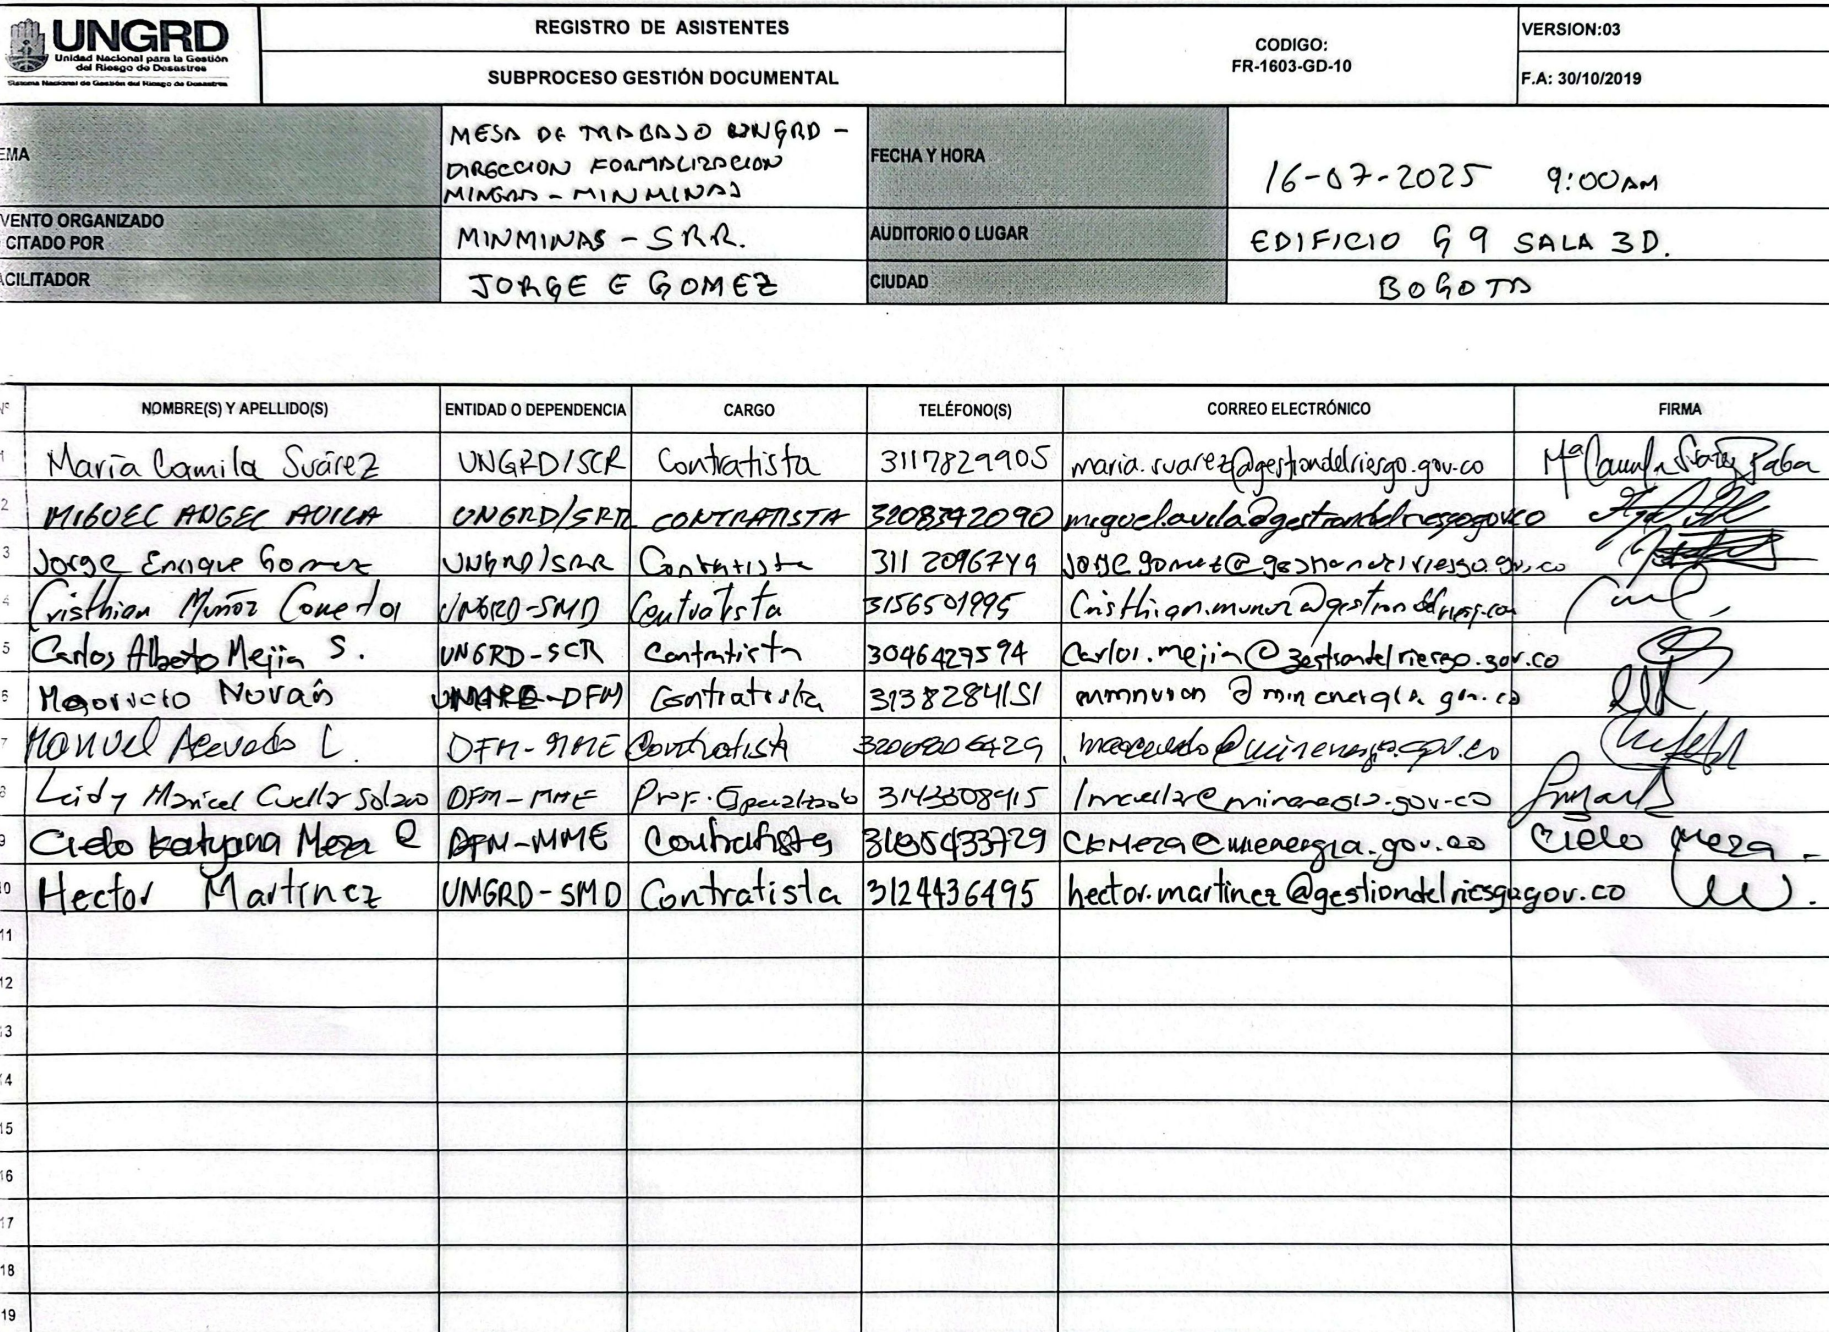 UNGRD
Unidad Nacional para la Gestión
del Riesgo de Desastres
Sistema Nacional de Gestión del Riesgo de Desastres
REGISTRO DE ASISTENTES
SUBPROCESO GESTIÓN DOCUMENTAL
CODIGO:
FR-1603-GD-10
VERSION:03
F.A: 30/10/2019
EMA
MESA DE TRABAJO UNGRD -
DIRECCION FORMALIZACION
- MINMINAS
FECHA Y HORA
16-07-2025 9:00AM
VENTO ORGANIZADO
CITADO POR
MINMINAS - SRR.
AUDITORIO O LUGAR
EDIFICIO G9 SALA 3D.
ACILITADOR
JORGE E GOMEZ
CIUDAD
BOGOTA
N° NOMBRE(S) Y APELLIDO(S) ENTIDAD O DEPENDENCIA CARGO TELÉFONO(S) CORREO ELECTRÓNICO FIRMA
1 María Camila Suárez UNGRD/SCR Contratista 3117829905 maria.suarez@gestiondelriesgo.gov.co Mª Camila Suárez Paba
2 MIGUEL ANGEL AVILA UNGRD/SRR CONTRATISTA 3208342090 miguel.avila@gestiondelriesgo.gov.co
3 Jorge Enrique Gomez UNGRD/SRR Contratista 311 2096749 jorge.gomez@gestiondelriesgo.gov.co
4 Cristhian Muñoz UNGRD-SMD Contratista 3156501995
5 Carlos Alberto Mejia S. UNGRD-SCR Contratista 3046429594 Carlos.mejia@gestiondelriesgo.gov.co
6 Contratista 3138284151
7 Manuel Acevedo L. DFM-MME Contratista
8 Leidy Maricel Cuellar Solano DFM-MME Prof. Especializado 3143308915 lmcuellar@minenergia.gov.co
9 Cielo Katyana Meza R DFM-MME Contratista CKMeza@minenergia.gov.co Cielo Meza
10 Hector Martínez UNGRD-SMD Contratista 3124436495 hector.martinez@gestiondelriesgo.gov.co
11
12
13
14
15
16
17
18
19